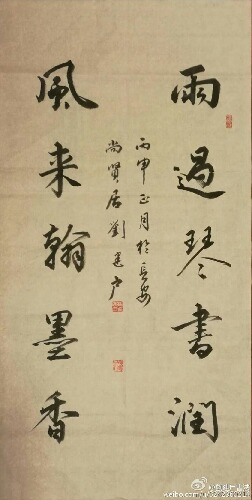 雨過琴書潤
風来翰墨香
丙申正月於長安
尚賢居劉